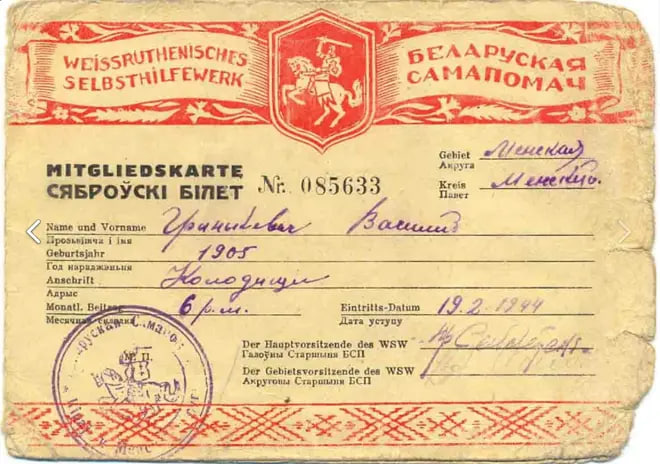 WEISSRUTHENISCHES
SELBSTHILFEWERK
БЕЛАРУСКАЯ
САМАПОМАЧ
MITGLIEDSKARTE
СЯБРОЎСКІ БІЛЕТ
Nr. 085633
Gebiet Менская
Акруга
Kreis Менский
Павет
Name und Vorname Василий
Прозьвішча і імя
Geburtsjahr 1905
Год нараджэньня
Anschrift Колодищи
Адрыс
Monatl. Beitrag 6 р.м.
Месячная складка
Eintritts-Datum 19.2.1944
Дата уступу
Der Hauptvorsitzende des WSW
Галоўны Старшыня БСП
Der Gebietsvorsitzende des WSW
Акруговы Старшыня БСП